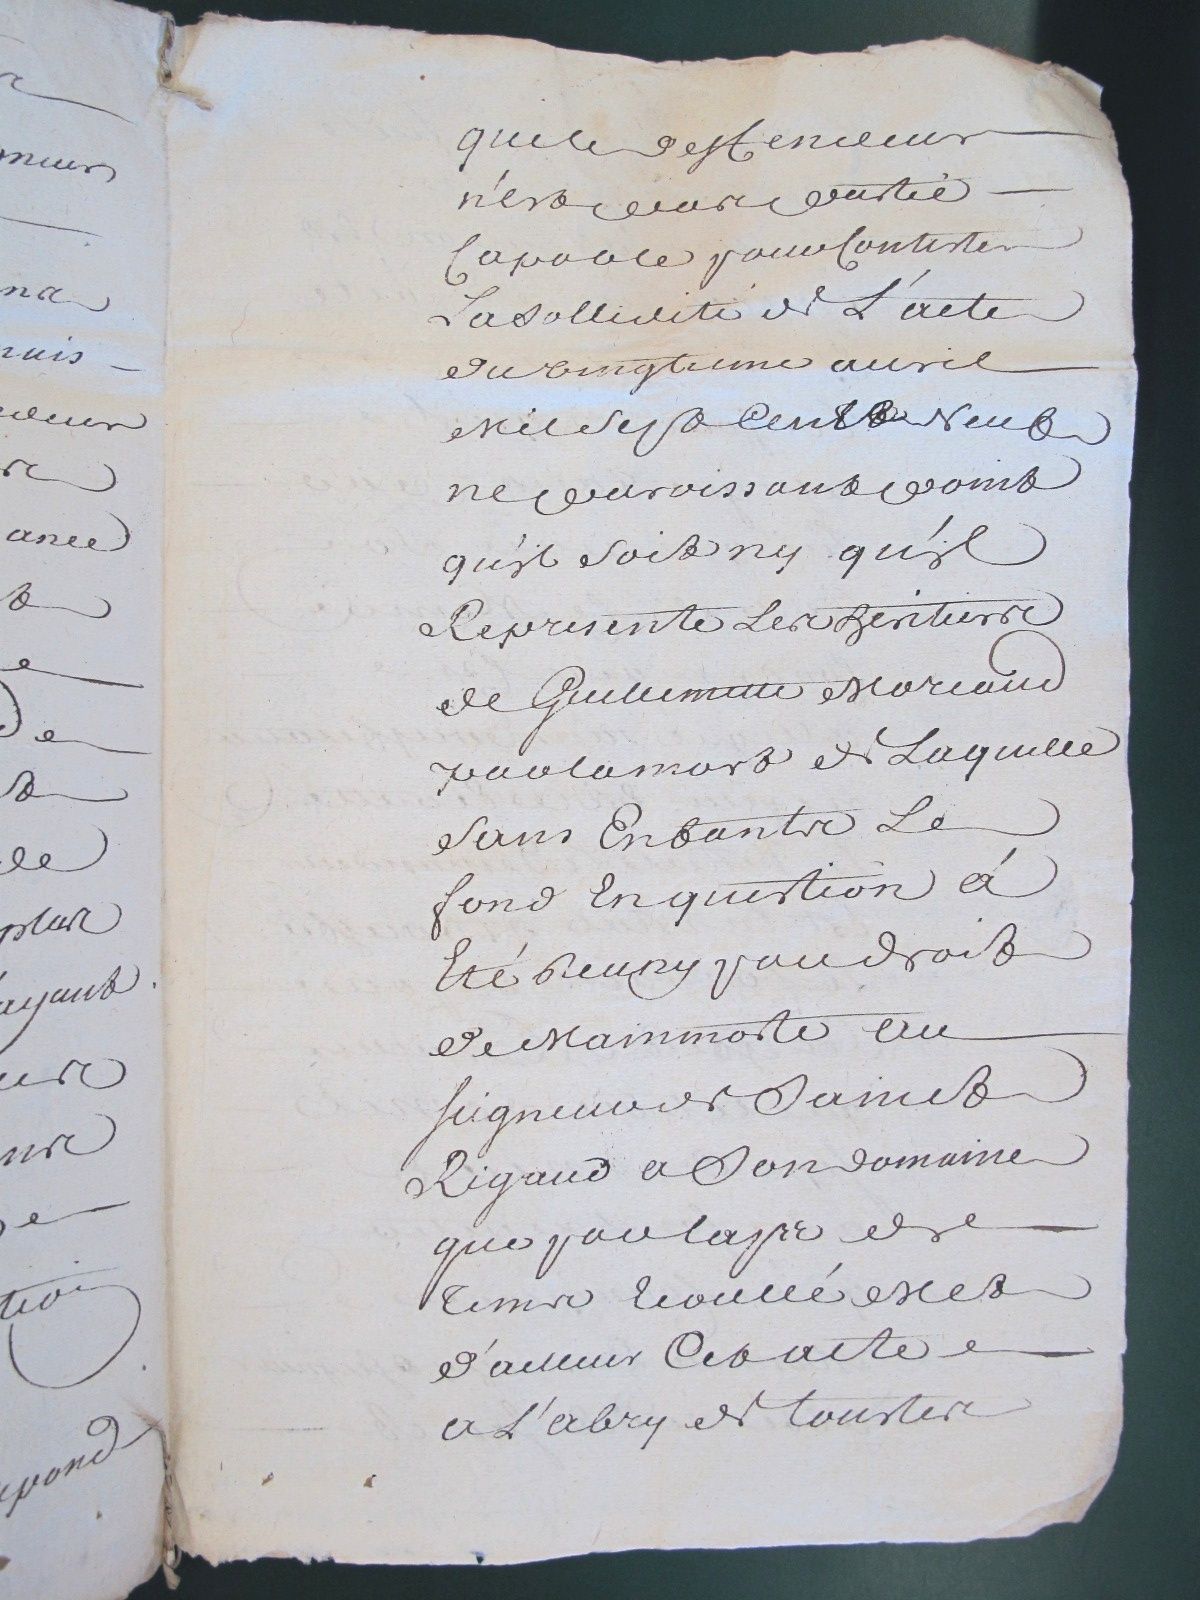 que le deffendeur
n'est pas partie
Capable pour Contester
La sollidité de L'acte
du vingtune avril
Mil Sept Cent neuf
ne paroissant point
qu'il soit ny qu'il
Represente Les heritiers
de Guillemette Moreaud
par la mort de Laquelle
sans Enfants Le
fond En question á
Eté reuny par droit
de Mainmorte au
seigneur de Sainct
Rigaud a son domaine
que par laps de
tems Ecoullé Met
d'ailleurs Cet acte
a L'abry de toustes